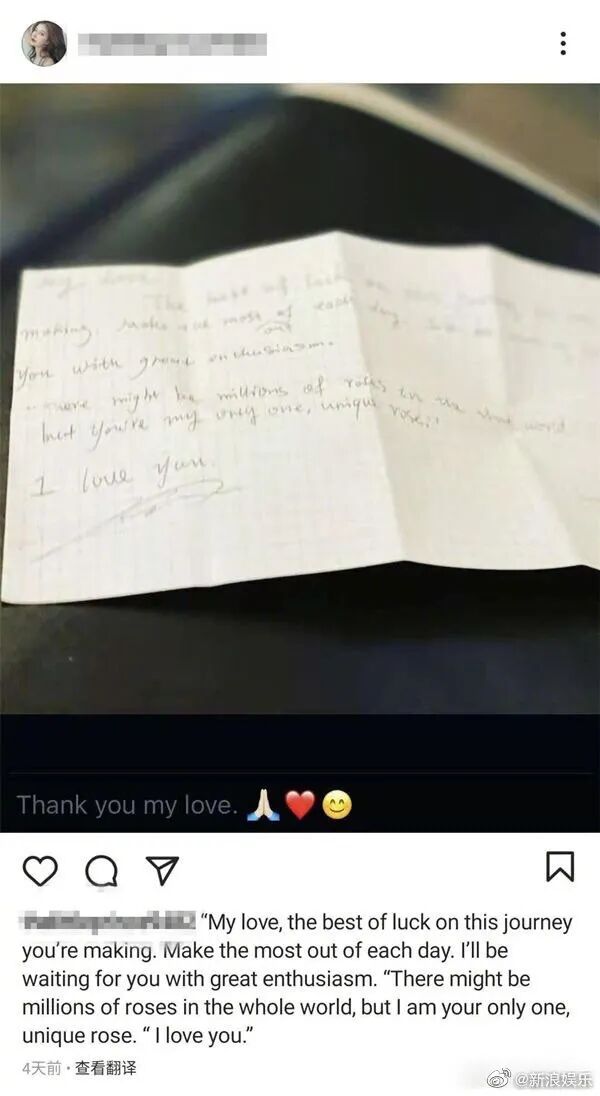 making. Make the most out of each day.
you with great enthusiasm.
There might be millions of roses in the whole world
but you're my only one, unique rose."
I love you.
Thank you my love. 🙏🏻❤️😊
“My love, the best of luck on this journey
you’re making. Make the most out of each day. I’ll be
waiting for you with great enthusiasm. “There might be
millions of roses in the whole world, but I am your only one,
unique rose. “ I love you.”
4天前 · 查看翻译
@新浪娱乐